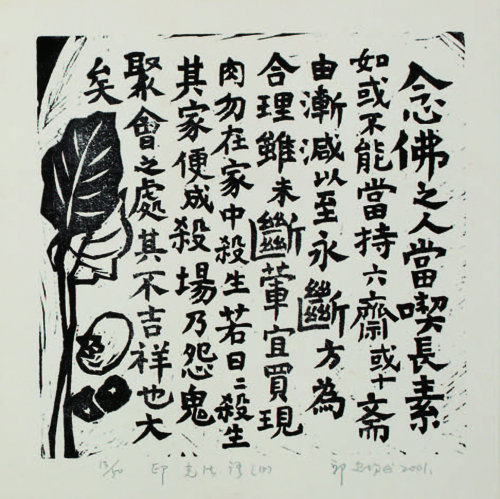 念佛之人當喫長素
如或不能當持六齋或十斋
由漸減以至永斷方為
合理雖未斷葷宜買現
肉勿在家中殺生若日〻殺生
其家便成殺場乃怨鬼
聚會之處其不吉祥也大
矣
印光法語 2001.